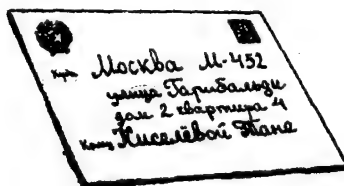 Куда Москва М-452
улица Гарибальди
дом 2 квартира 4
Кому Киселёвой Тане